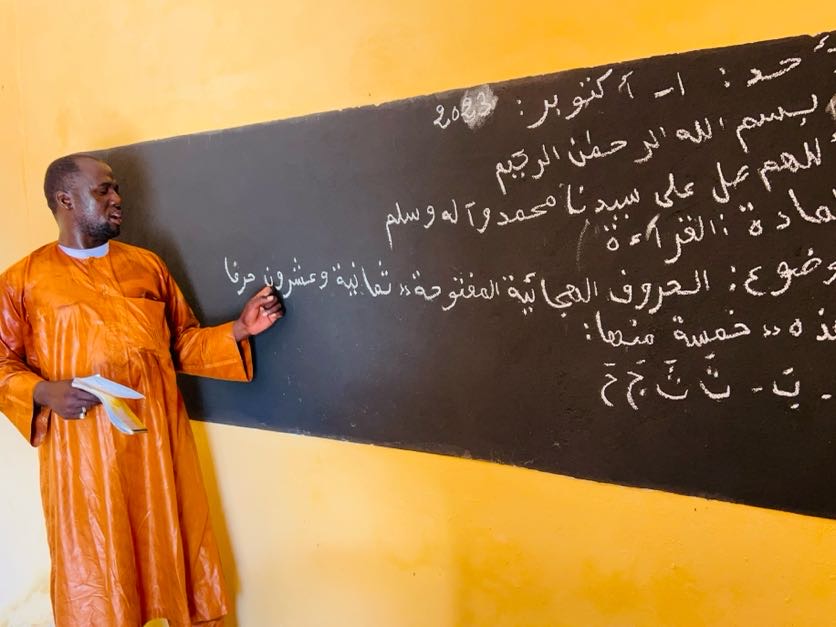 أحد: ١ـ أكتوبر: 2023
بسم الله الرحمٰن الرحيم
اللهم صل على سيدنا محمد وآله وسلم
مادة: القراءة
الحروف الهجائية المفتوحة» ثمانية وعشرون حرفا
خمسة منها:
ـ بَ ـ تَ ثَ جَ حَ